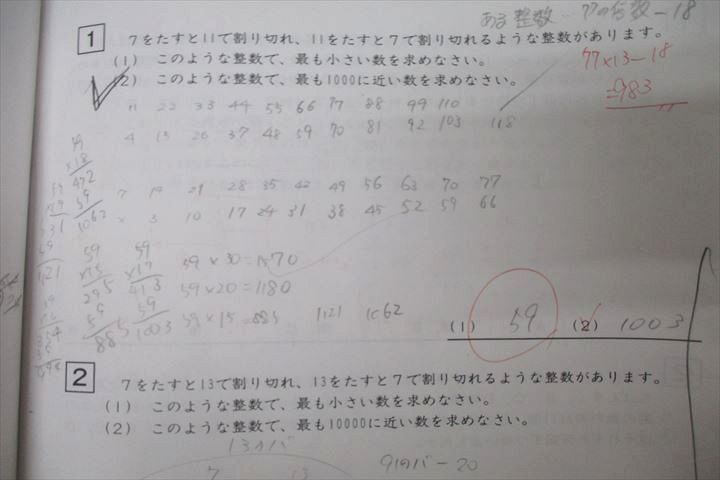 ある整数…77の倍数－18
1
7をたすと11で割り切れ、11をたすと7で割り切れるような整数があります。
(1) このような整数で、最も小さい数を求めなさい。
(2) このような整数で、最も1000に近い数を求めなさい。
77×13－18
=983
11 22 33 44 55 66 77 88 99 110
4 15 26 37 48 59 70 81 92 103 118
7 14 21 28 35 42 49 56 63 70 77
× 3 10 17 24 31 38 45 52 59 66
59×30=1570
59×20=1180
59×15=885 1121 1062
(1) 59 (2) 1003
2
7をたすと13で割り切れ、13をたすと7で割り切れるような整数があります。
(1) このような整数で、最も小さい数を求めなさい。
(2) このような整数で、最も10000に近い数を求めなさい。
13のバ
91のバ－20
7 13